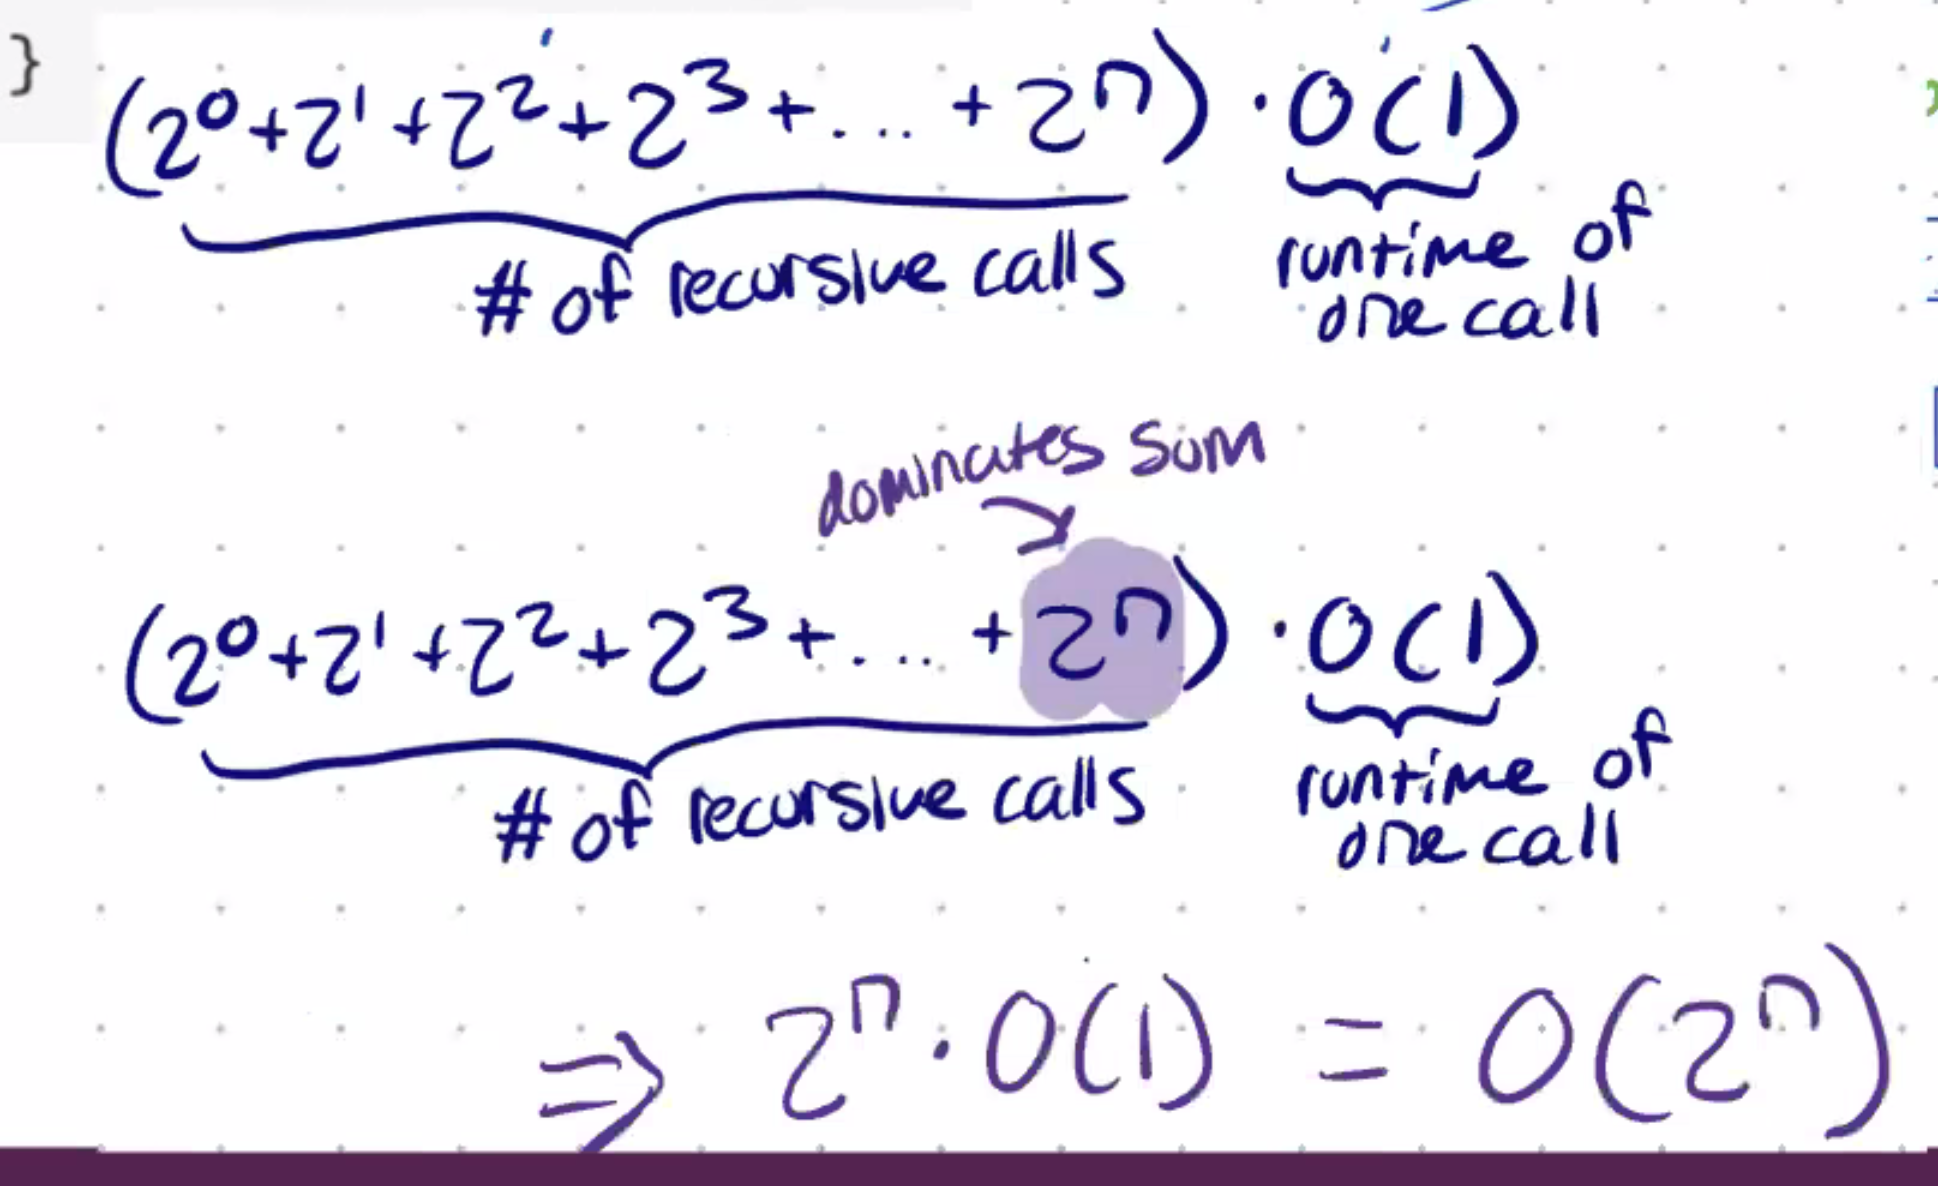 }
(2⁰+2¹+2²+2³+... +2ⁿ) · O(1)
# of recursive calls
runtime of
one call
dominates sum
(2⁰+2¹+2²+2³+... +2ⁿ) · O(1)
# of recursive calls
runtime of
one call
⇒ 2ⁿ · O(1) = O(2ⁿ)